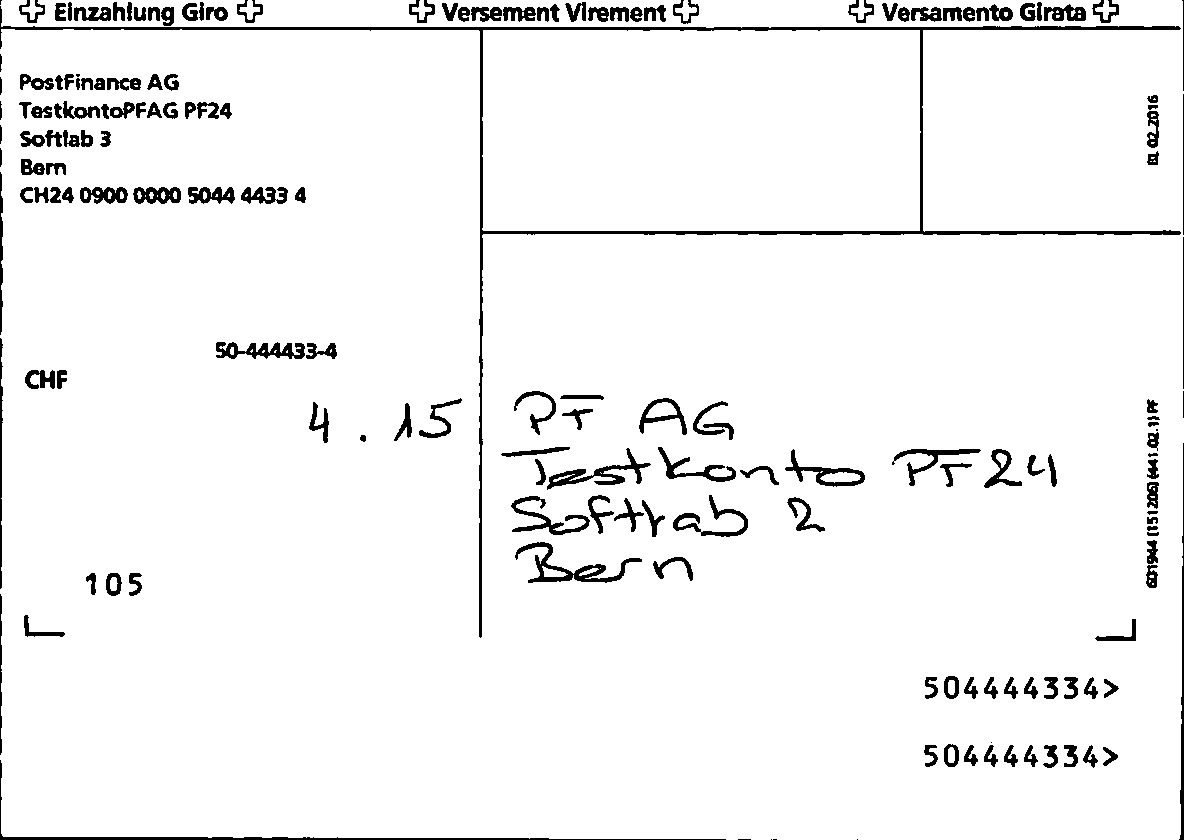 Einzahlung Giro
Versement Virement
Versamento Girata
PostFinance AG
TestkontoPFAG PF24
Softlab 3
Bern
CH24 0900 0000 5044 4433 4
50-444433-4
CHF
4 . 15
105
PF AG
Testkonto PF24
Softlab 2
Bern
02.2016
(441.02.1) PF
504444334>
504444334>